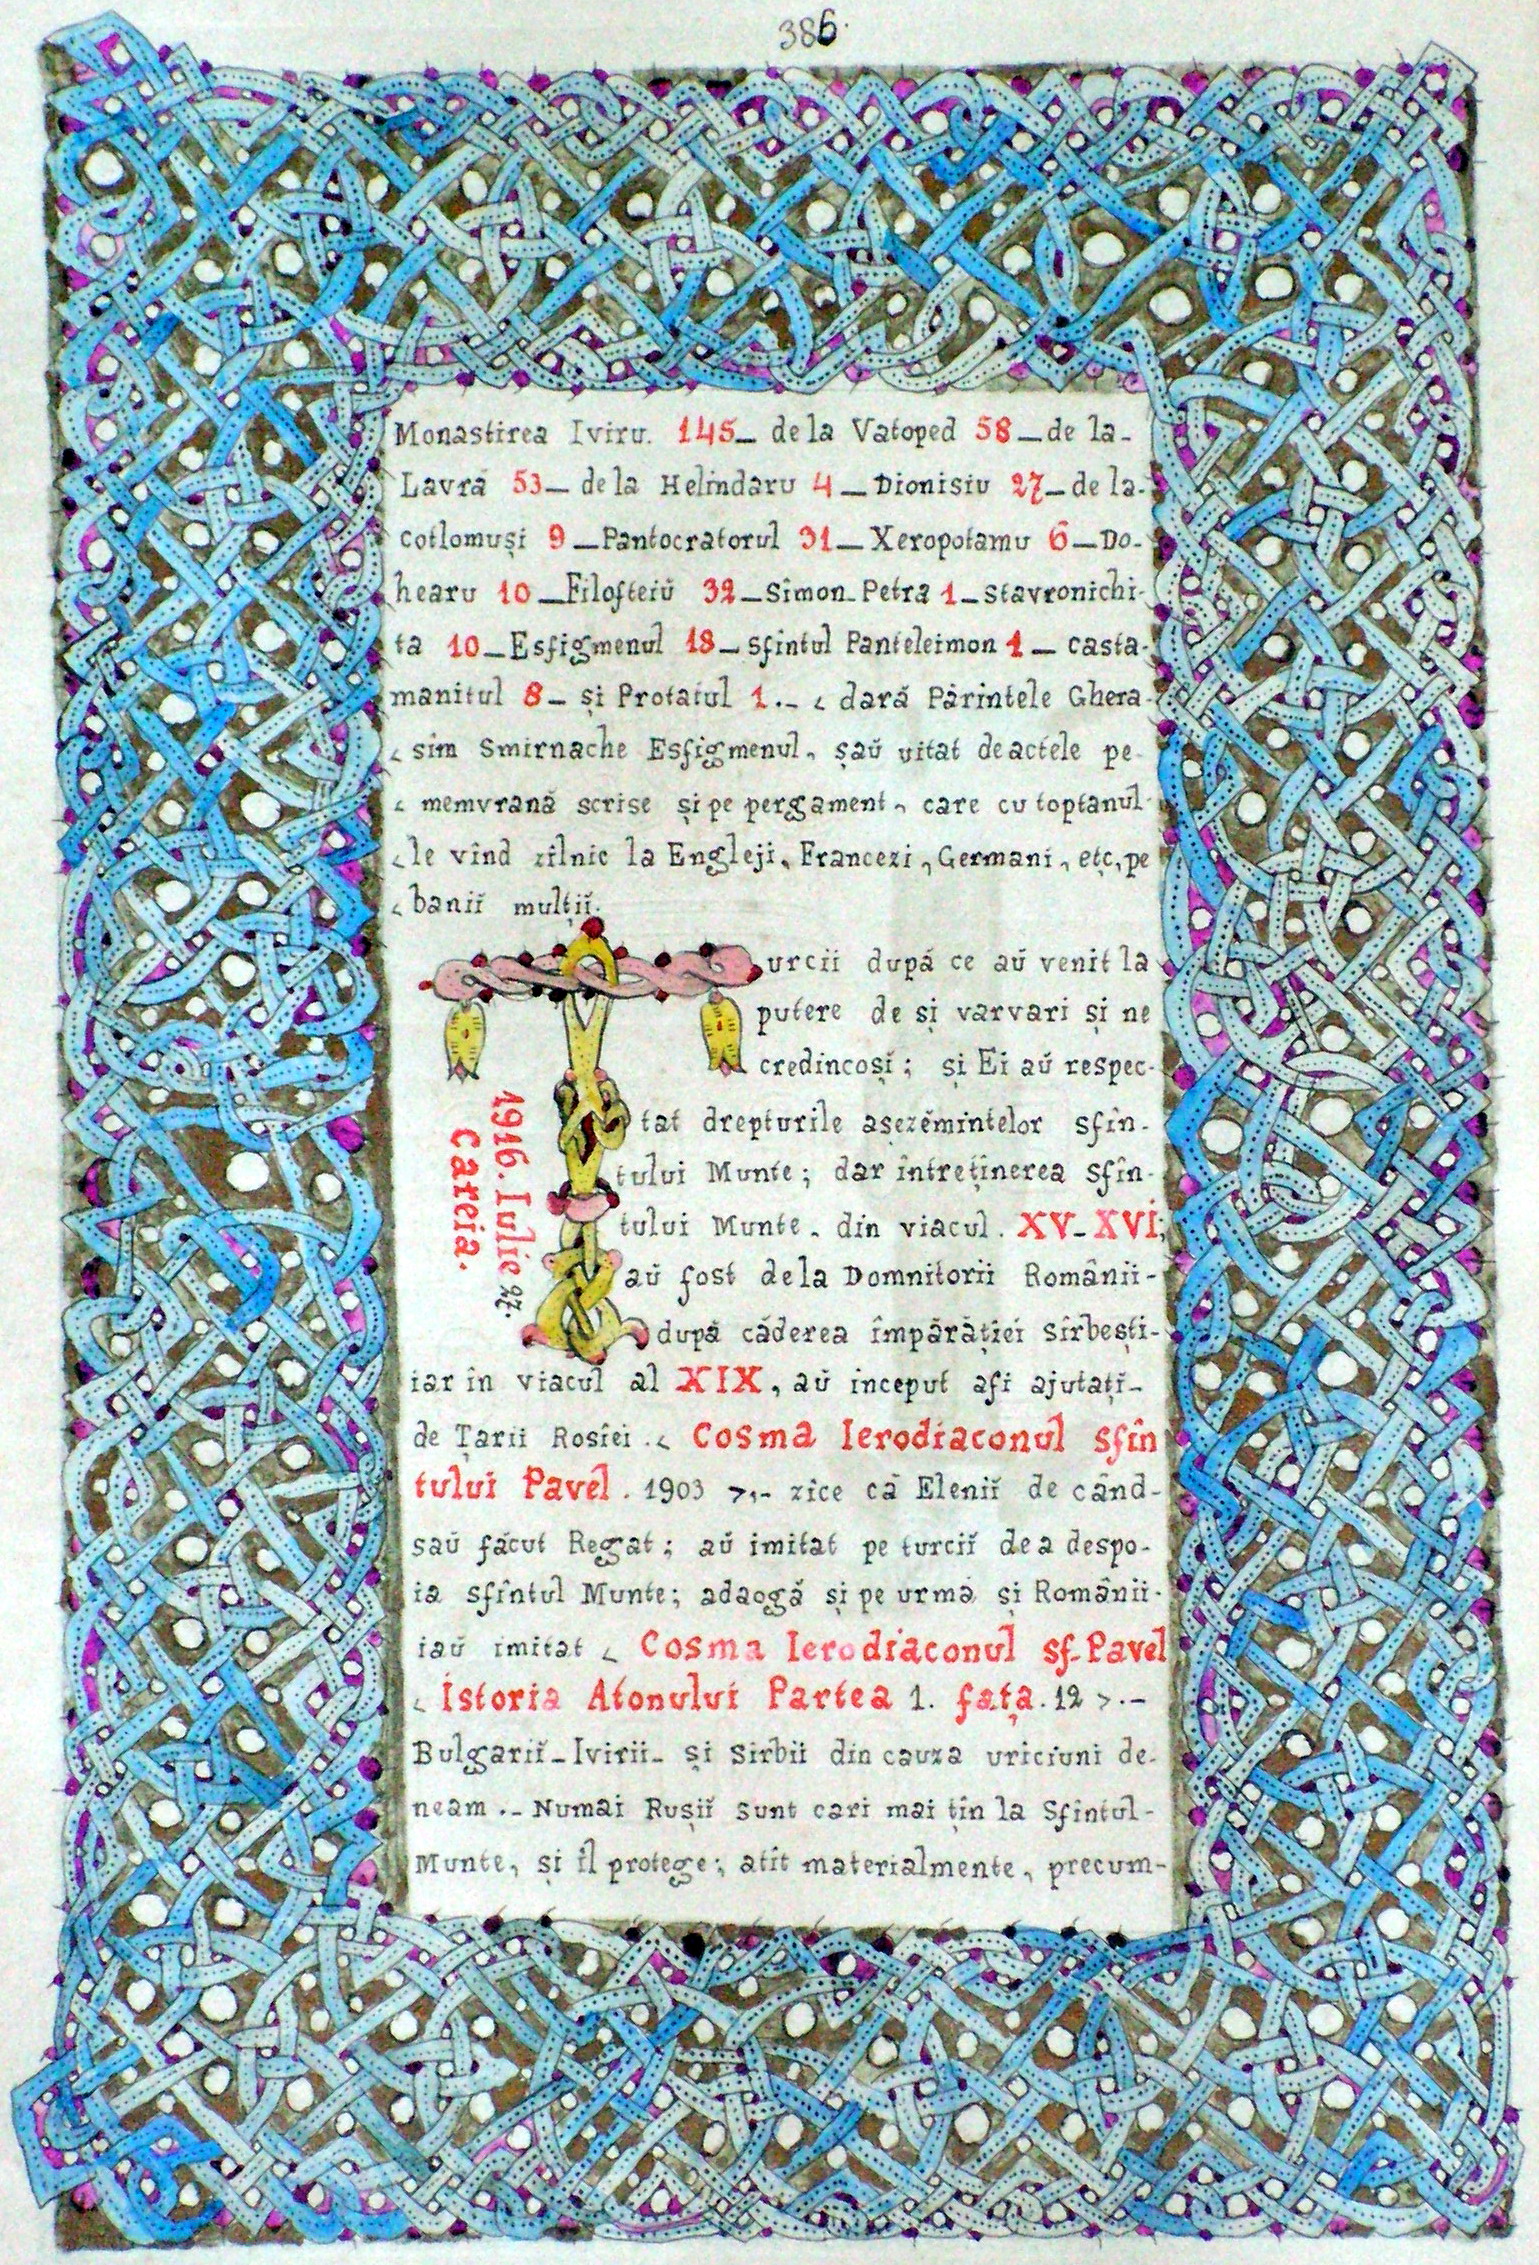 386.
Monastirea Iviru. 145_ de la Vatoped 58_de la_
Lavră 53_ de la Helindaru 4_Dionisiu 27_de la.
cotlomuși 9_Pantocratorul 31_Xeropotamu 6_Do-
hearu 10_Filofteiŭ 32_Simon_Petra 1_Stavronichi-
ta 10_Esfigmenul 18_sfintul Panteleimon 1_ casta-
manitul 8_ și Protatul 1._ ‹ dară Părintele Ghera-
‹ sim Smirnache Esfigmenul, saŭ uitat de actele pe
‹ memvrană scrise și pe pergament, care cu toptanul
‹ le vînd zilnic la Engleji, Francezi, Germani, etc, pe
‹ banii mulții.
Turcii după ce aŭ venit la
putere de și varvari și ne
credincoși; și Ei aŭ respec-
tat drepturile așezĕmintelor sfîn-
tului Munte; dar întreținerea sfîn-
tului Munte. din viacul. XV-XVI;
aŭ fost de la Domnitorii Românii-
după căderea împărăției sîrbești-
1916. Iulie 27.
Careia.
iar în viacul al XIX, aŭ inceput afi ajutați_
de Țarii Rosiei.‹ Cosma Ierodiaconul sfîn
tului Pavel. 1903 >._ zice că Elenii de când-
saŭ făcut Regat; aŭ imitat pe turcii de a despo-
ia sfîntul Munte; adaogă și pe urmă și Românii.
iaŭ imitat ‹ Cosma Ierodiaconul sf. Pavel
‹ istoria Atonului Partea 1. fața. 12 >._
Bulgarii_Ivirii_ și Sirbii din cauza uriciuni de-
neam ._ Numai Rușii sunt cari mai țin la Sfîntul-
Munte, și îl protege; atît materialmente, precum-